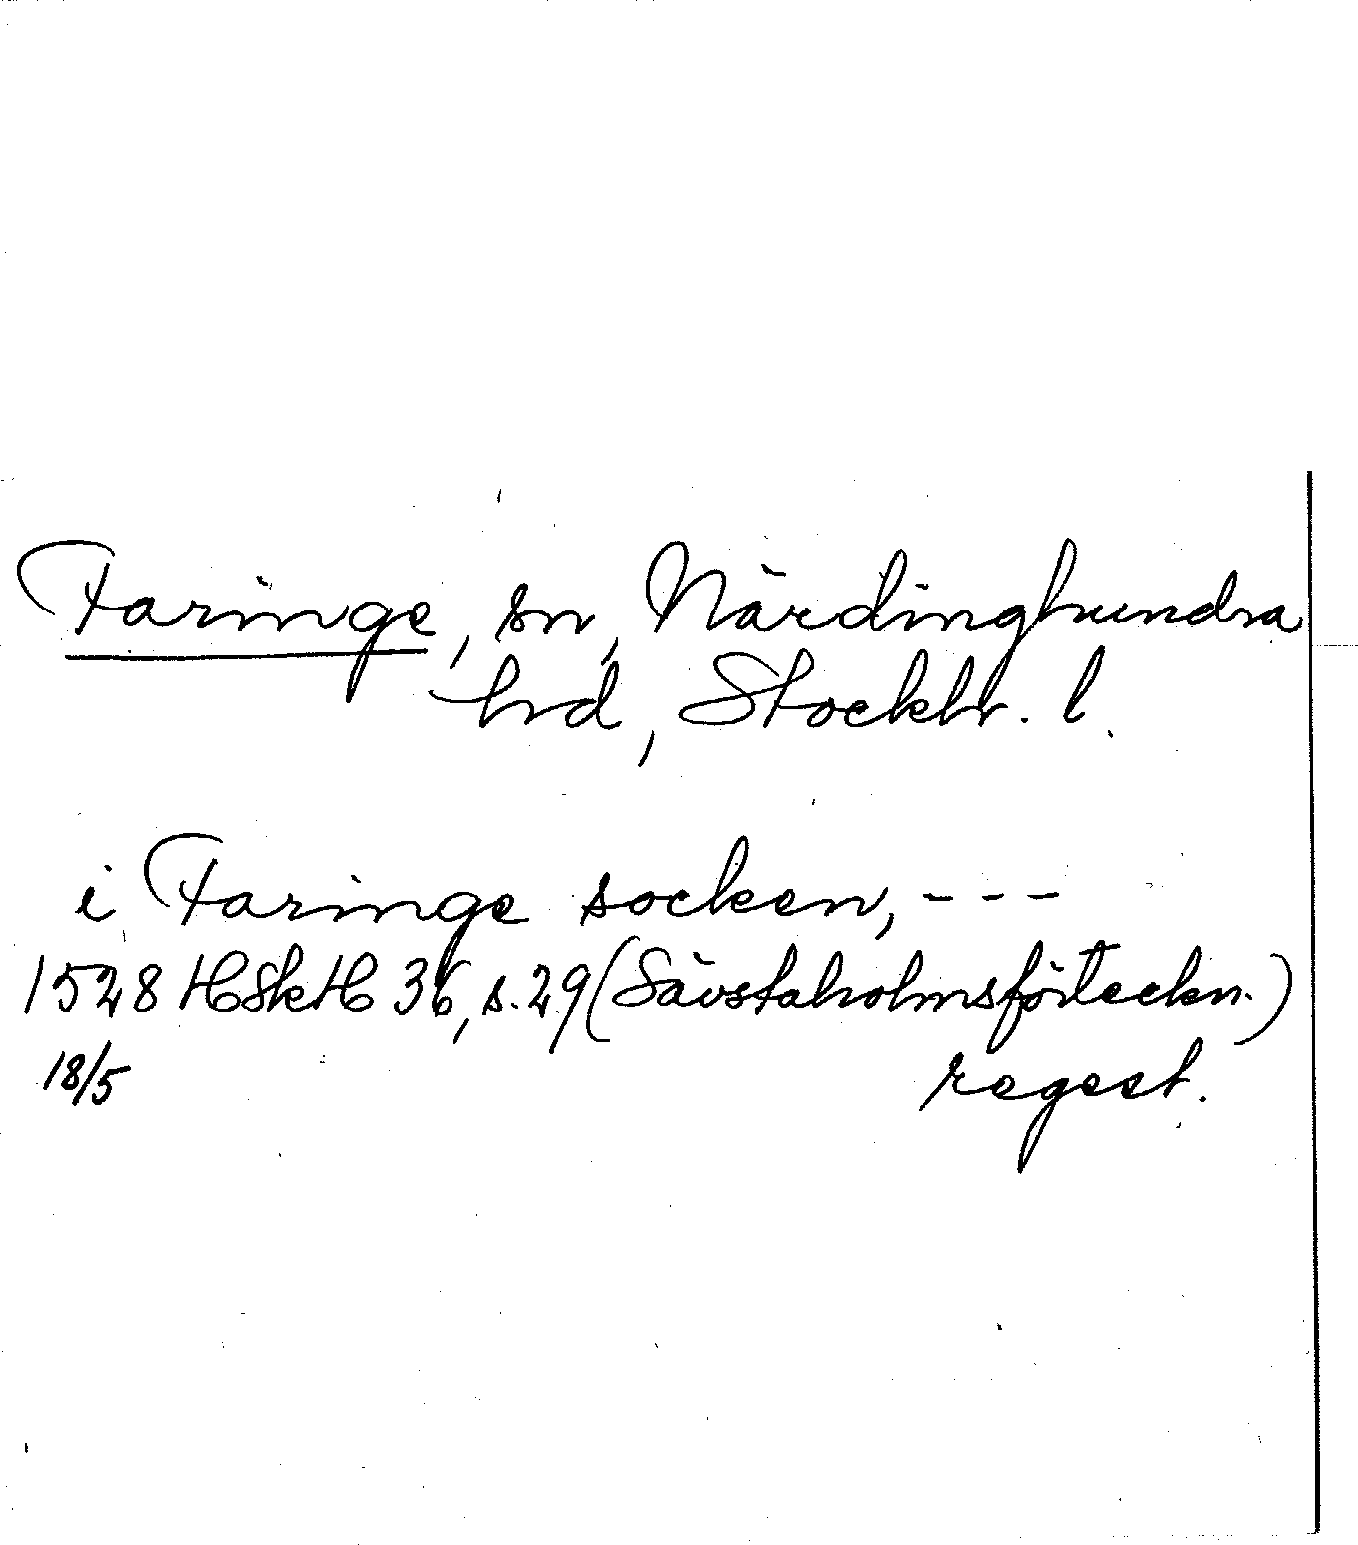 Faringe, sn, Närdinghundra
hrd, Stockh. l.
i Faringe socken, - - -
1528 HSkH 36, s. 29 (Sävstaholmsförteckn.)
18/5 regest.